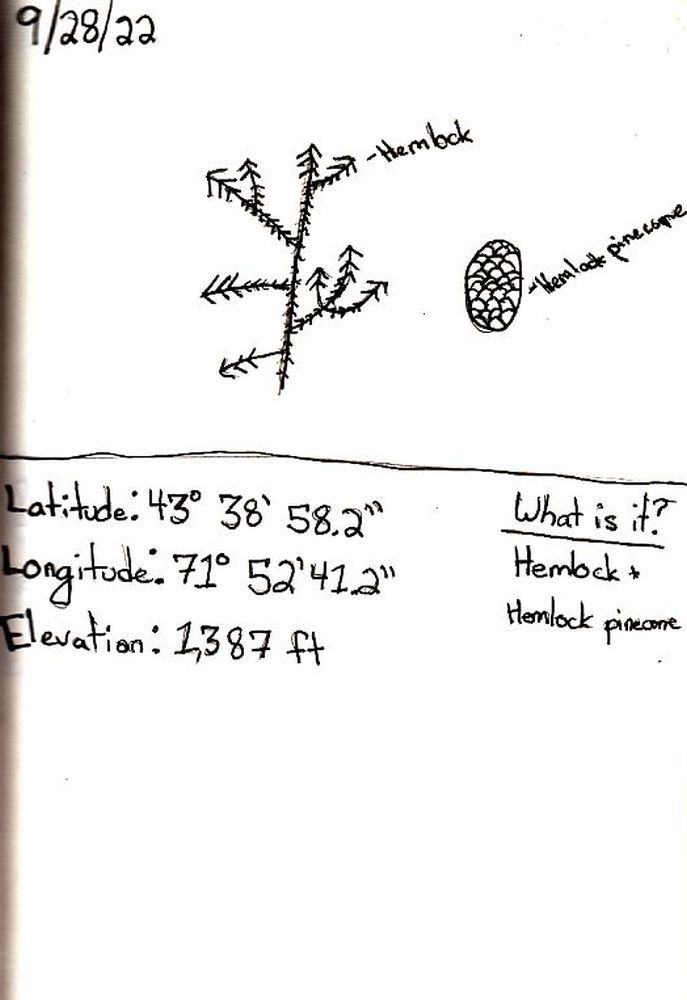 9/28/22
-Hemlock
-Hemlock pinecone
Latitude: 43° 38' 58.2"
Longitude: 71° 52' 41.2"
Elevation: 1,387 ft
What is it?
Hemlock +
Hemlock pinecone